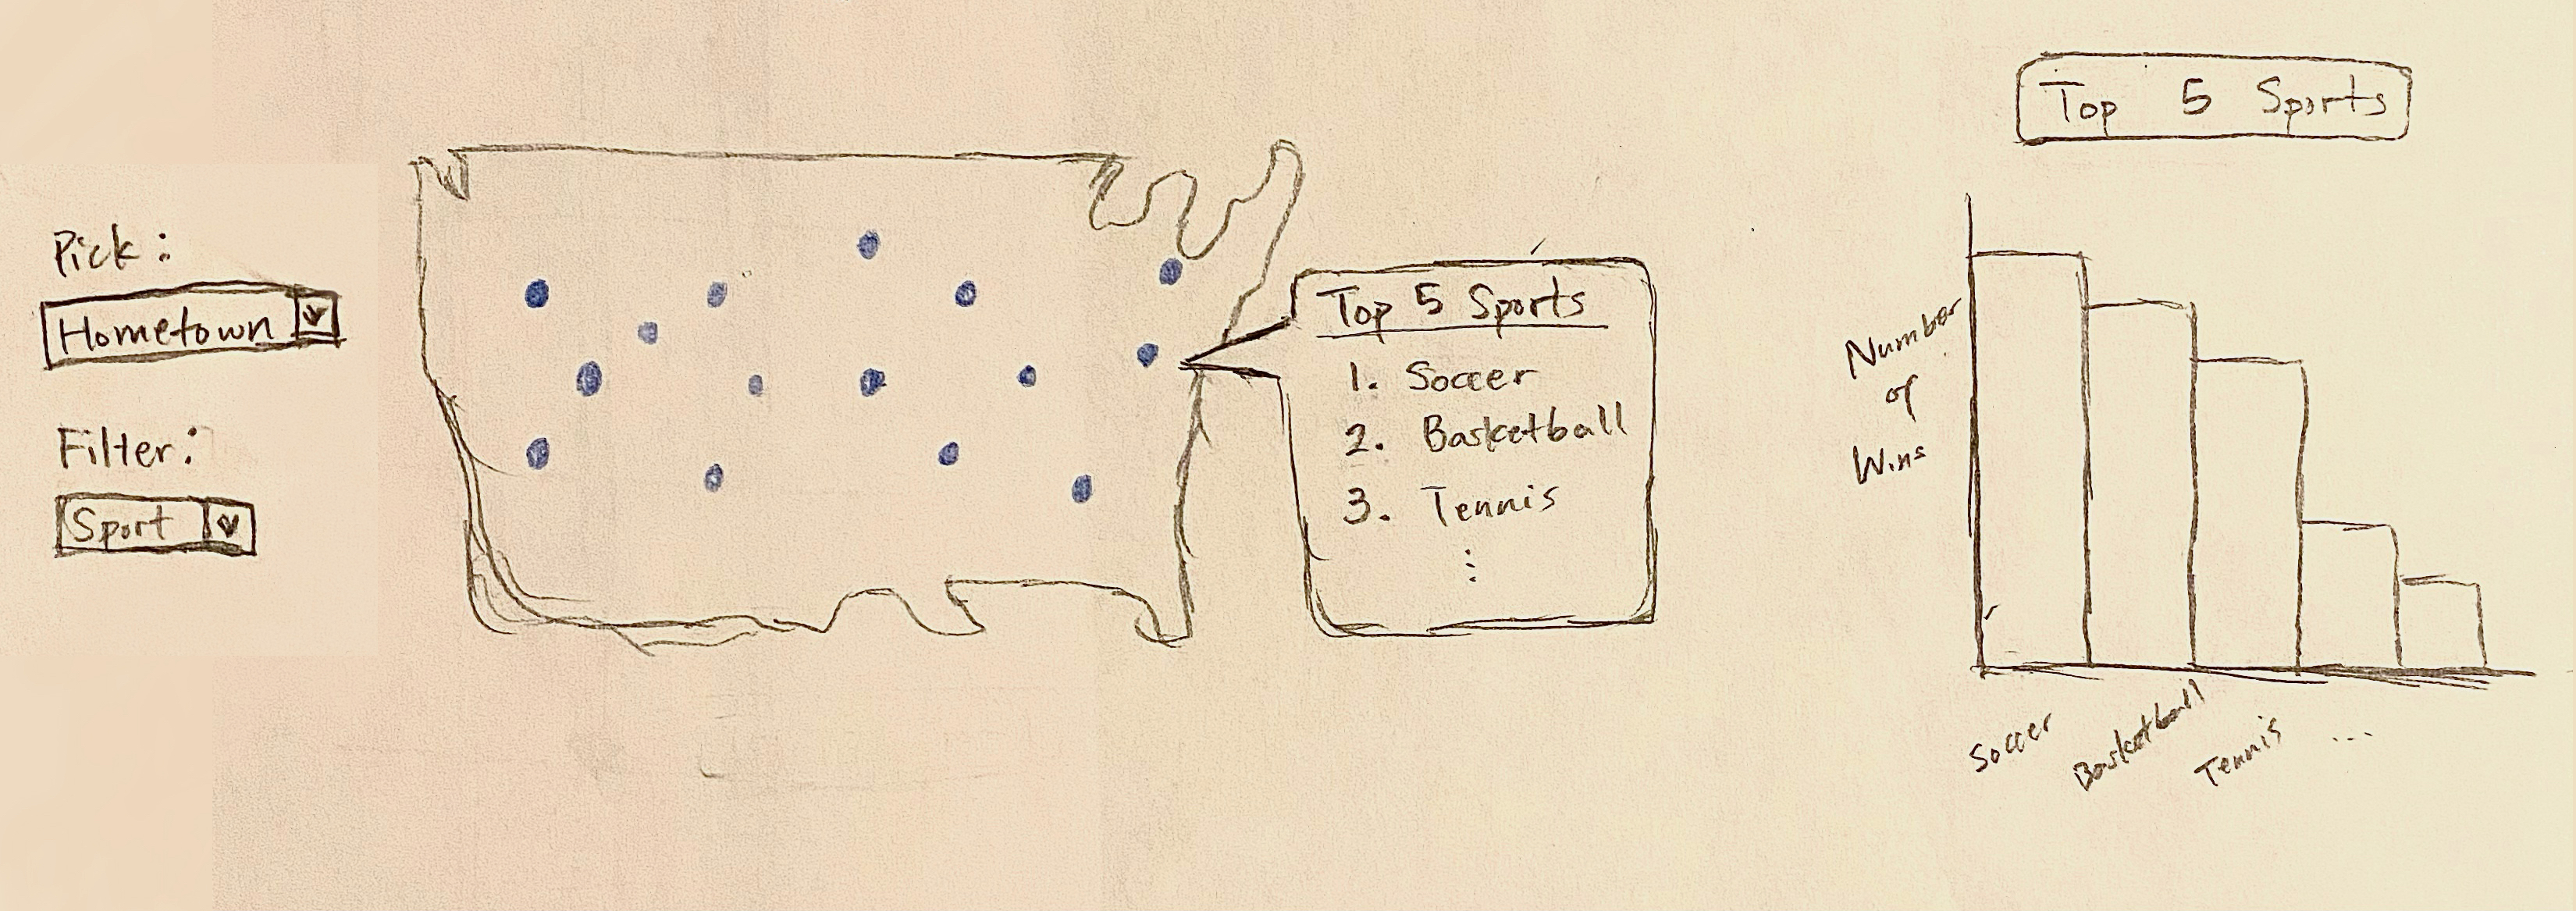 Pick:
Hometown
Filter:
Sport
Top 5 Sports
1. Soccer
2. Basketball
3. Tennis
⋮
Top 5 Sports
Number
of
Wins
Soccer
Basketball
Tennis
...